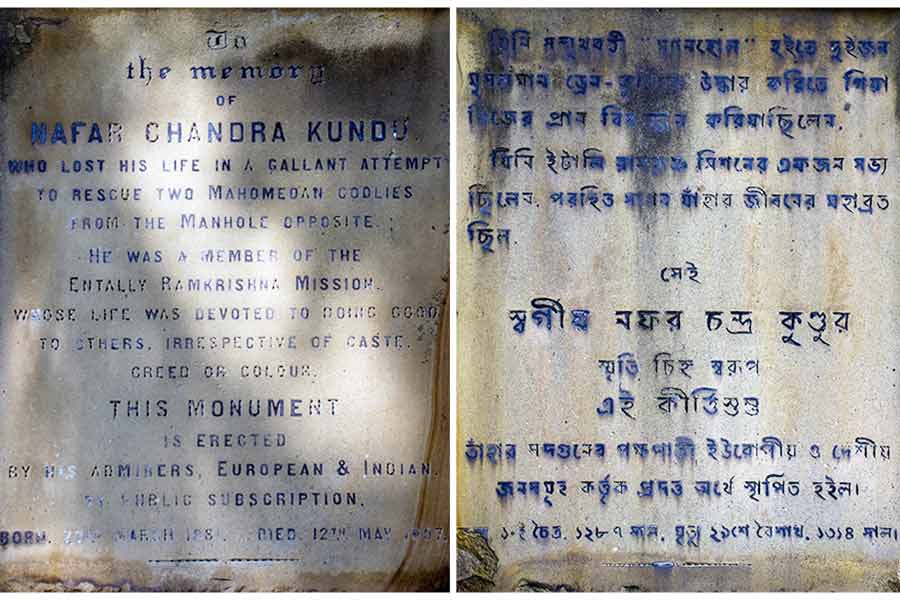 To
the memory
OF
NAFAR CHANDRA KUNDU,
WHO LOST HIS LIFE IN A GALLANT ATTEMPT
TO RESCUE TWO MAHOMEDAN COOLIES
FROM THE MANHOLE OPPOSITE.
HE WAS A MEMBER OF THE
ENTALLY RAMKRISHNA MISSION,
WHOSE LIFE WAS DEVOTED TO DOING GOOD
TO OTHERS, IRRESPECTIVE OF CASTE,
CREED OR COLOUR.
THIS MONUMENT
IS ERECTED
BY HIS ADMIRERS, EUROPEAN & INDIAN,
BY PUBLIC SUBSCRIPTION.
BORN, MARCH 1881. DIED, 12TH MAY 1907.
যিনি সম্মুখবর্ত্তী "ম্যানহোল" হইতে দুইজন
মুসলমান ড্রেন-কুলিকে উদ্ধার করিতে গিয়া
নিজের প্রান বিসর্জ্জন করিয়াছিলেন,
যিনি ইটালি রামকৃষ্ণ মিশনের একজন সভ্য
ছিলেন, পরহিত সাধন যাঁহার জীবনের মহাব্রত
ছিল,
সেই
স্বর্গীয় নফর চন্দ্র কুণ্ডুর
স্মৃতি চিহ্ন স্বরূপ
এই কীর্ত্তিস্তম্ভ
তাঁহার সদগুনের পক্ষপাতী ইউরোপীয় ও দেশীয়
জনসমূহ কর্ত্তৃক প্রদত্ত অর্থে স্থাপিত হইল।
চৈত্র, ১২৮৭ সাল, মৃত্যু ২৯শে বৈশাখ, ১৩১৪ সাল।